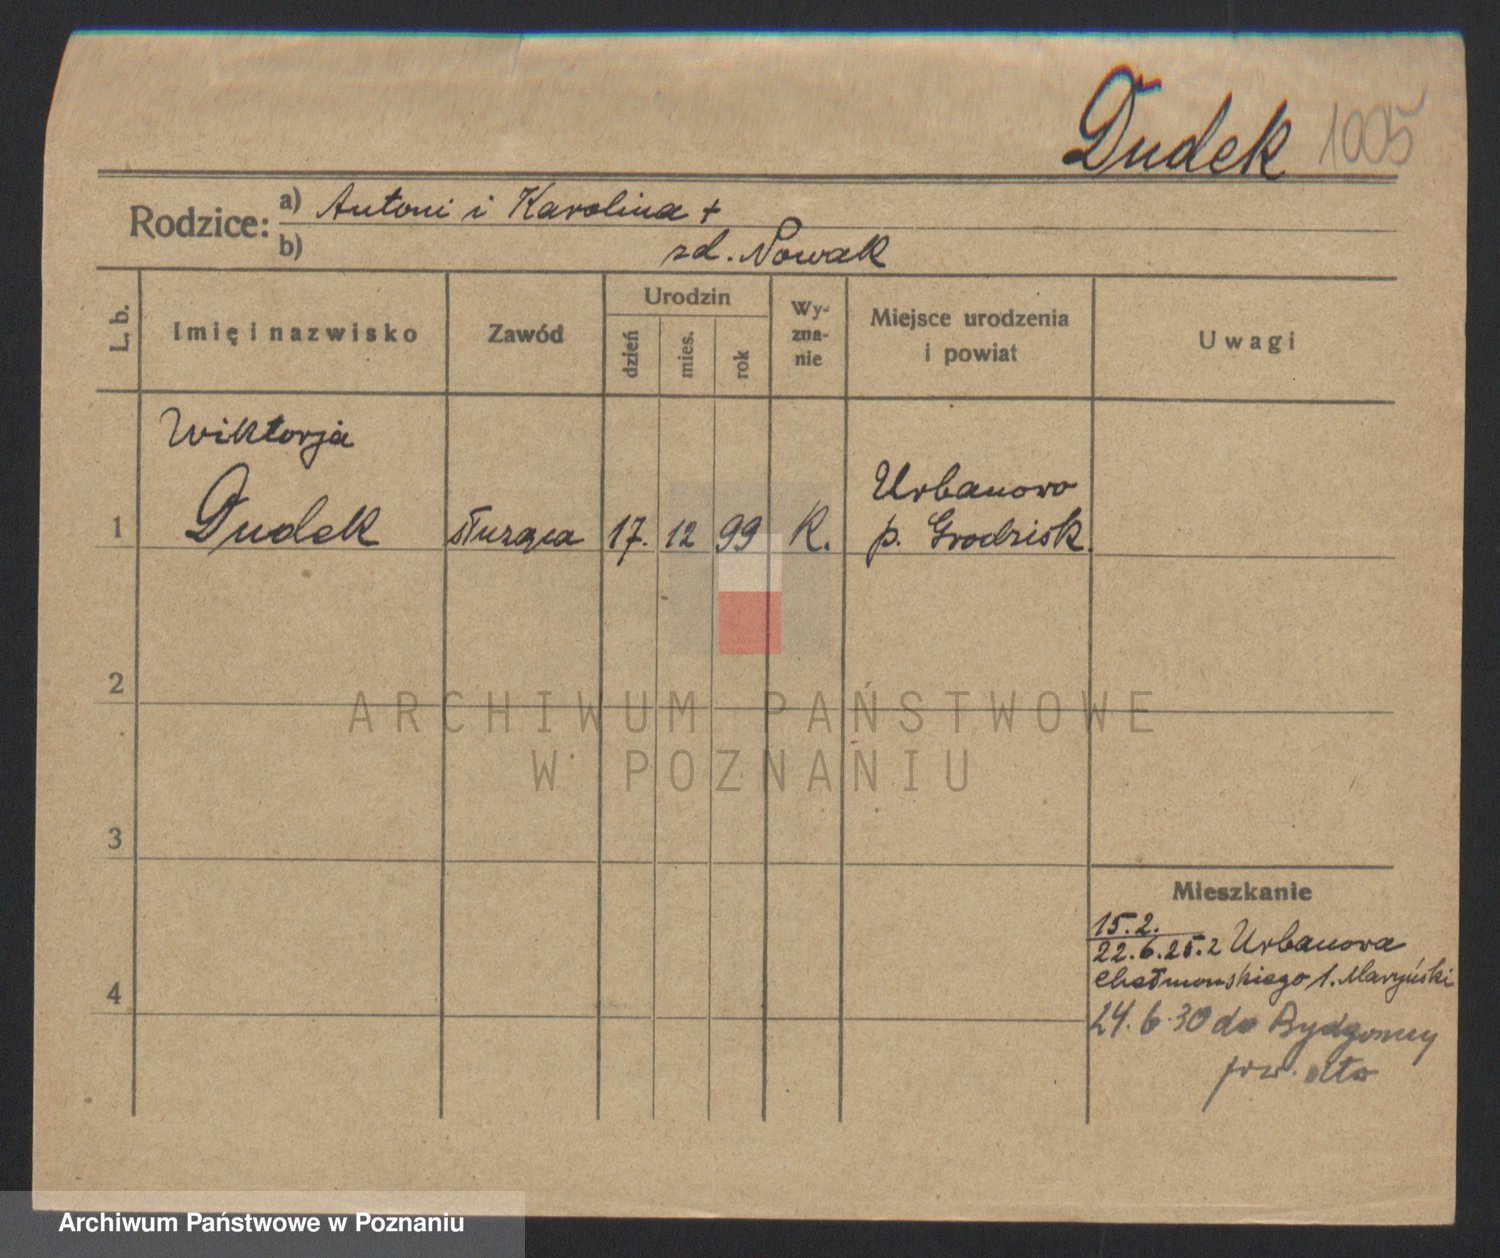 Dudek 1005
Rodzice: a) Antoni i Karolina +
b) zd. Nowak
L. b.
Imię i nazwisko
Zawód
Urodzin
dzień
mies.
rok
Wy-
zna-
nie
Miejsce urodzenia
i powiat
Uwagi
Wiktorja
1 Dudek służąca 17. 12 99 K. Urbanowo
p. Grodzisk.
2
3
4
ARCHIWUM PAŃSTWOWE
W POZNANIU
Mieszkanie
15.2.
22.6.25.z Urbanowa
Chełmonskiego 1. Maryński
24.6.30 do Bydgoszczy
pow.
Archiwum Państwowe w Poznaniu